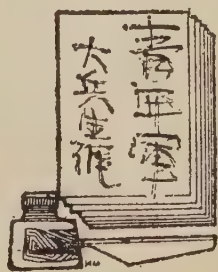 青年軍
大兵生涯